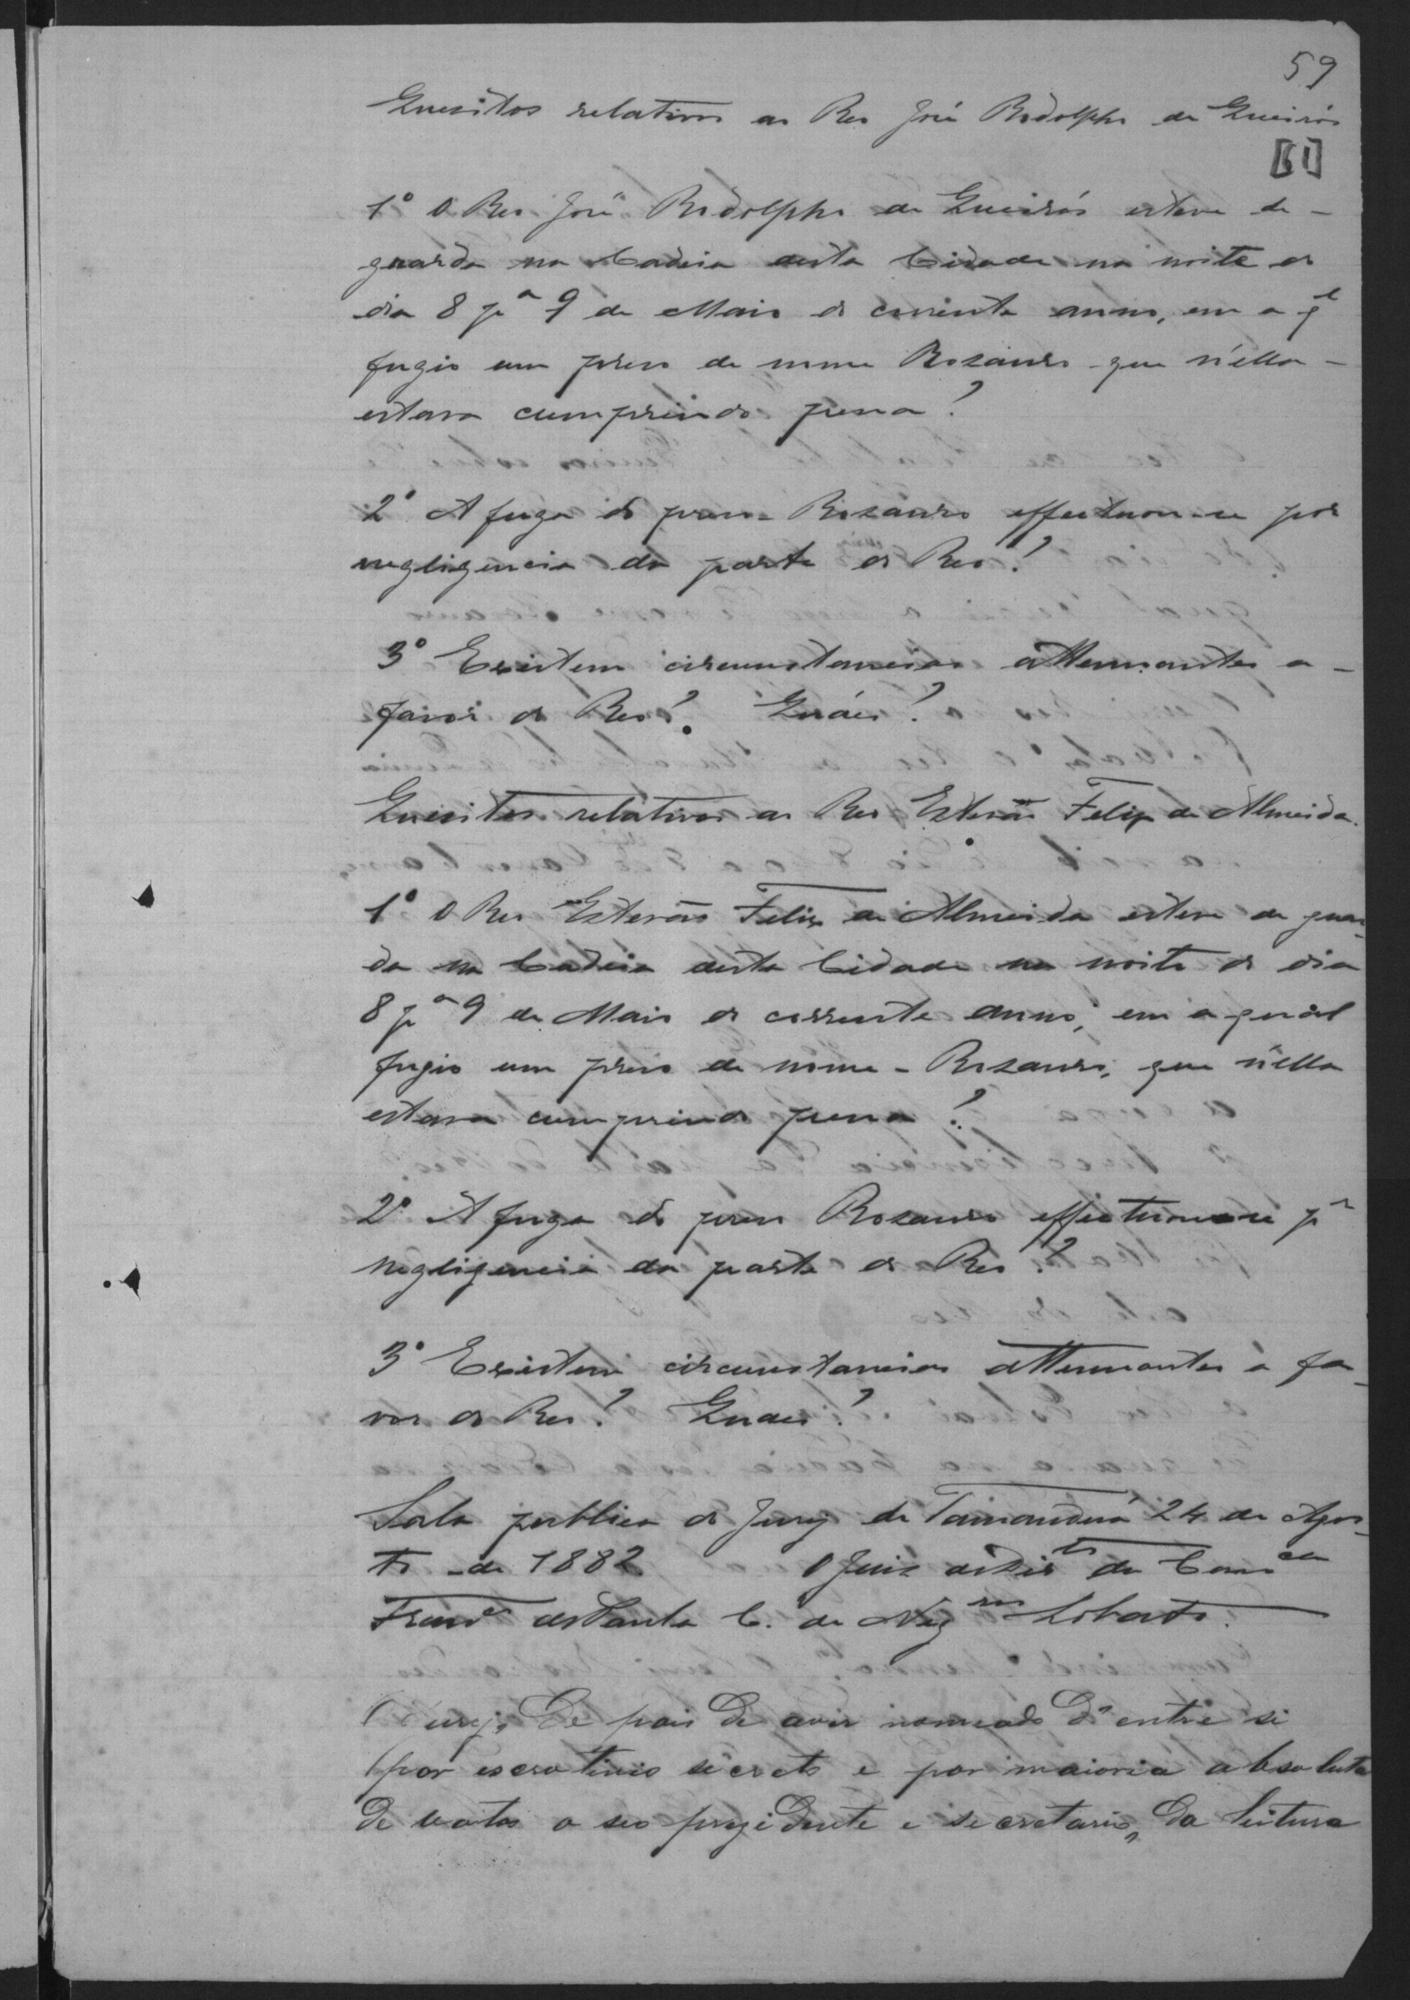 59
Quesitos relativos ao Reo José Rodolpho de Queirós
[61]
1º O Reo José Rodolpho de Queirós esteve de
guarda na Cadeia desta Cidade na noite do
dia 8 pª 9 de Maio do corrente anno, em a ql
fugio um preso de nome Rozauro que n'ella
estava cumprindo pena?
2º A fuga do preso Rozauro effectuou-se por
negligencia da parte do Reo?
3º Existem circunstancias attenuantes a
favor do Reo? Quáes?
Quesitos relativos ao Reo Estevão Felix de Almeida.
1º O Reo Estevão Felix de Almeida esteve de guar-
da na Cadeia desta Cidade na noite do dia
8 pª 9 de Maio do corrente anno, em a qual
fugio um preso de nome Rozauro, que n'ella
estava cumprindo pena?
2º A fuga do preso Rozauro effectuou-se pr
negligencia da parte do Reo?
3º Existem circunstancias attenuantes a fa-
vor do Reo? Quaes?
Sala publica do Jury de Tamanduá 24 de Agos-
to de 1882 O Juiz de Dirto da Comca
Franco de Paula C. de Negros Lobato.
O Jury, de pois de aver nomeado d'entre si
por escrotinio sicreto e por maioria absoluta
de votos o seo prezidente e secretario, da leitura